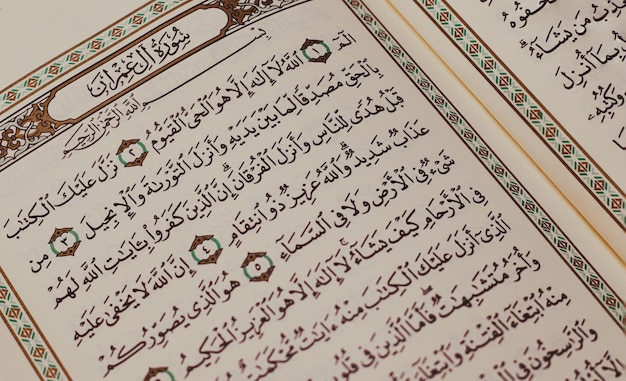 سُورَةُ آلِ عِمْرَانَ
بِسْمِ اللَّهِ الرَّحْمَٰنِ الرَّحِيمِ
الٓمٓ ١ ٱللَّهُ لَآ إِلَٰهَ إِلَّا هُوَ ٱلْحَىُّ ٱلْقَيُّومُ ٢ نَزَّلَ عَلَيْكَ ٱلْكِتَٰبَ
بِٱلْحَقِّ مُصَدِّقًا لِّمَا بَيْنَ يَدَيْهِ وَأَنزَلَ ٱلتَّوْرَىٰةَ وَٱلْإِنجِيلَ ٣ مِن
قَبْلُ هُدًى لِّلنَّاسِ وَأَنزَلَ ٱلْفُرْقَانَ ۗ إِنَّ ٱلَّذِينَ كَفَرُوا۟ بِـَٔايَٰتِ ٱللَّهِ لَهُمْ
عَذَابٌ شَدِيدٌ ۗ وَٱللَّهُ عَزِيزٌ ذُو ٱنتِقَامٍ ٤ إِنَّ ٱللَّهَ لَا يَخْفَىٰ عَلَيْهِ
شَىْءٌ فِى ٱلْأَرْضِ وَلَا فِى ٱلسَّمَآءِ ٥ هُوَ ٱلَّذِى يُصَوِّرُكُمْ
فِى ٱلْأَرْحَامِ كَيْفَ يَشَآءُ ۚ لَآ إِلَٰهَ إِلَّا هُوَ ٱلْعَزِيزُ ٱلْحَكِيمُ
ٱلَّذِىٓ أَنزَلَ عَلَيْكَ ٱلْكِتَٰبَ مِنْهُ ءَايَٰتٌ مُّحْكَمَٰتٌ
وَأُخَرُ مُتَشَٰبِهَٰتٌ ۖ فَأَمَّا ٱلَّذِينَ فِى قُلُو
مِنْهُ ٱبْتِغَآءَ ٱلْفِتْنَةِ وَٱبْتِغَآءَ
وَٱلرَّٰسِخُونَ فِى ٱلْ
مَن يَشَآءُ
بِمَآ أُنزِلَ